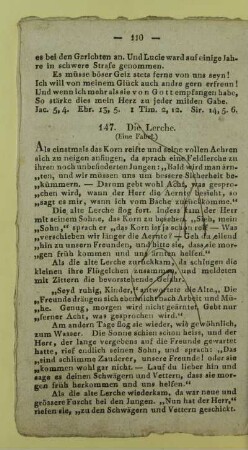 — 110 —
es bei den Gerichten an. Und Lucie ward auf einige Jah-
re in schwere Strafe genommen.
Es müsse böser Geiz stets ferne von uns seyn!
Ich will von meinem Glück auch andre gern erfreun!
Und wenn ich mehr als sie von Gott empfangen habe,
So stärke dies mein Herz zu jeder milden Gabe.
Jac. 5, 4. Ehr. 13, 5. 1 Tim. 2, 12. Sir. 14, 5. 6.
147. Die Lerche.
(Eine Fabel.)
Als einstmals das Korn reifte und seine vollen Aehren
sich zu neigen anfingen, da sprach eine Feldlerche zu
ihren noch unbefiederten Jungen: „Bald wird man ärn-
„ten, und wir müssen uns um bessere Sicherheit be-
„kümmern. — Darum gebt wohl Acht, was gespro-
„chen wird, wann der Herr die Aernte besieht, so
„sagt es mir, wann ich vom Bache zurückkomme."
Die alte Lerche flog fort. Indess kam der Herr
mit seinem Sohne, das Korn zu besehen. „Sieh, mein
„Sohn," sprach er „das Korn ist ja schon reif. — Was
„verschieben wir länger die Aernte? — Geh du eilend
„hin zu unsern Freunden, und bitte sie, dass sie mor-
„gen früh kommen und uns ärnten helfen."
Als die alte Lerche zurückkam, da schlugen die
kleinen ihre Flügelchen zusammen, und meldeten
mit Zittern die bevorstehende Gefahr.
„Seyd ruhig, Kinder," antwortete die Alte. „Die
„Freunde drängen sich eben nicht nach Arbeit und Mü-
„he. Genug, morgen wird nicht geärntet. Gebt nur
„ferner Acht, was gesprochen wird."
Am andern Tage flog sie wieder, wie gewöhnlich,
zum Wasser. Die Sonne schien schon heiss, und der
Herr, der lange vergebens auf die Freunde gewartet
hatte, rief endlich seinen Sohn, und sprach: „Das
„sind schlimme Zauderer, unsere Freunde! oder sie
„kommen wohl gar nicht. — Lauf du lieber hin und
sage es deinen Schwägern und Vettern, dass sie mor-
gen früh herkommen und uns helfen."
Als die alte Lerche wiederkam, da war neue und
grössere Furcht bei den Jungen. „Nun hat der Herr,"
riefen sie, „zu den Schwägern und Vettern geschickt.